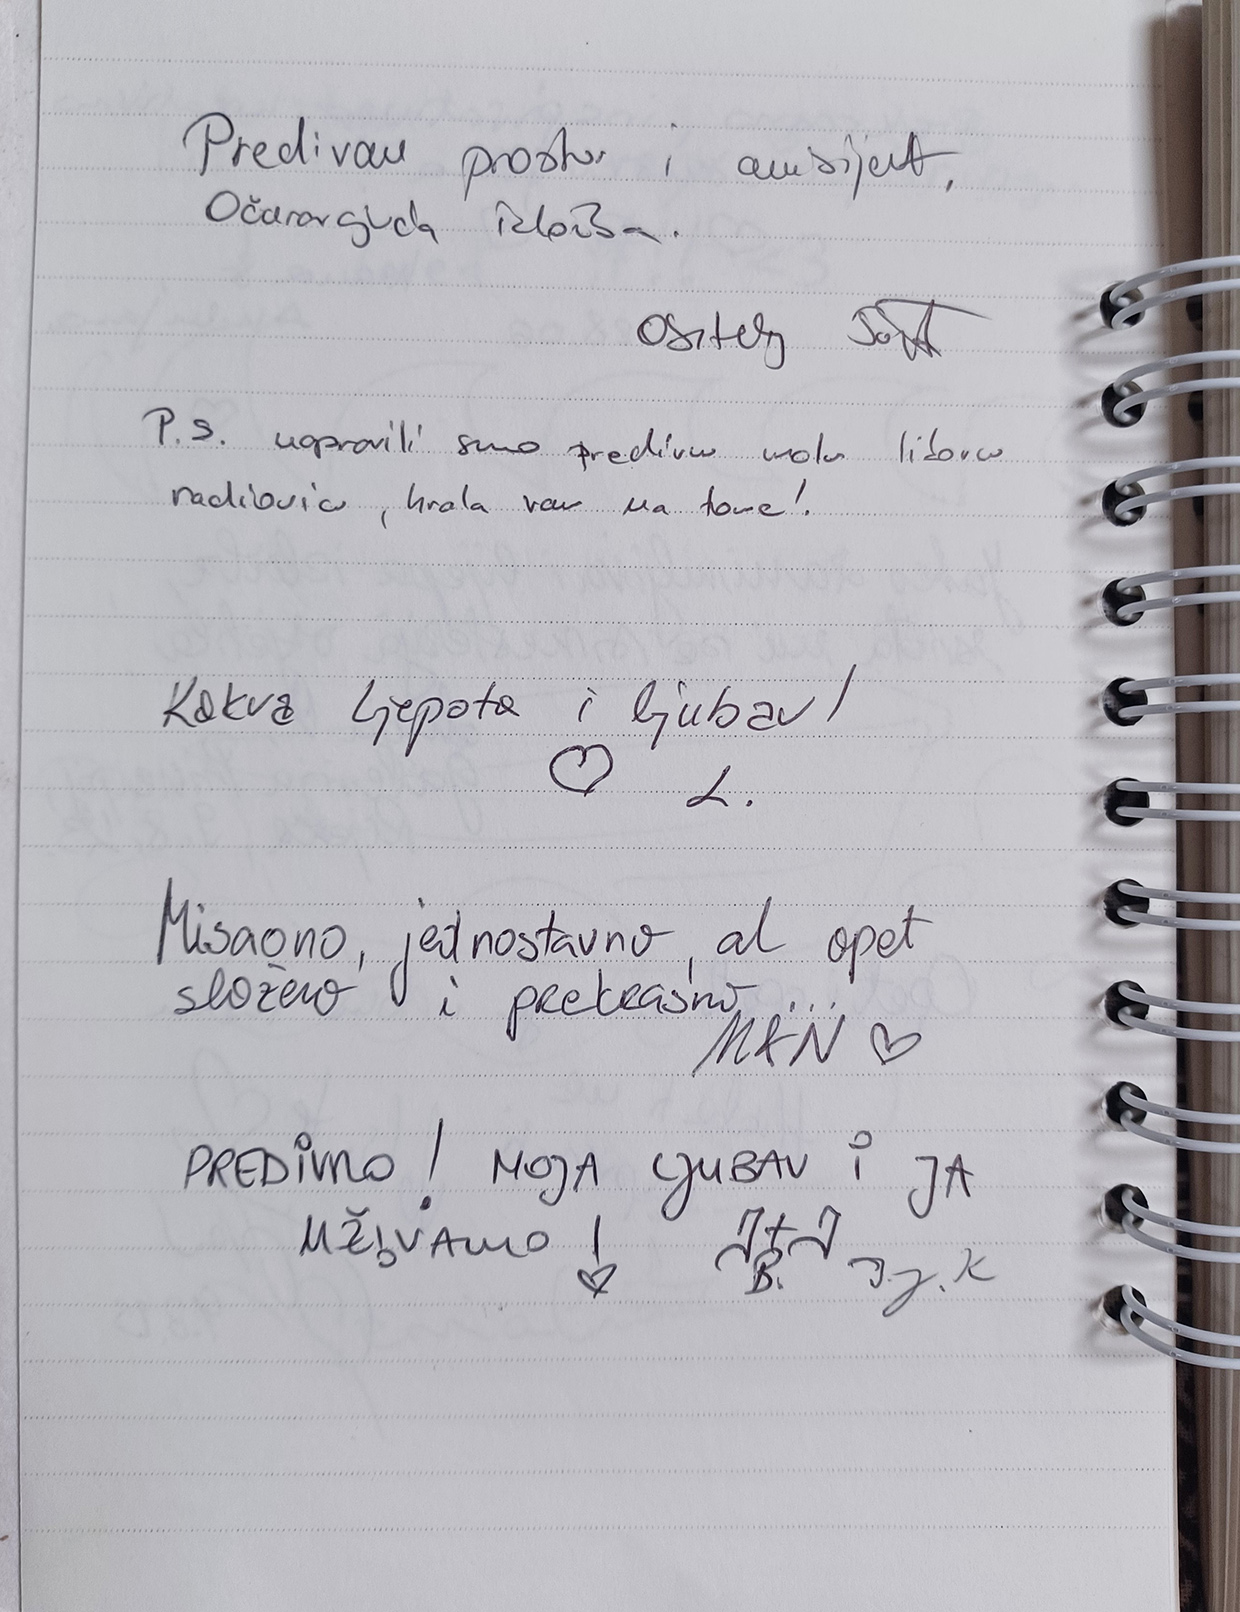 Predivan prostor i ambijent,
Očaravajuća izložba.
P.S. napravili smo predivnu malu likovnu
radionicu, hvala vam na tome!
Kakva ljepota i ljubav!
L.
Misaono, jednostavno, al opet
složeno i prekrasno...
M&N
PREDIVNO! MOJA LJUBAV I JA
UŽIVAMO!
B.